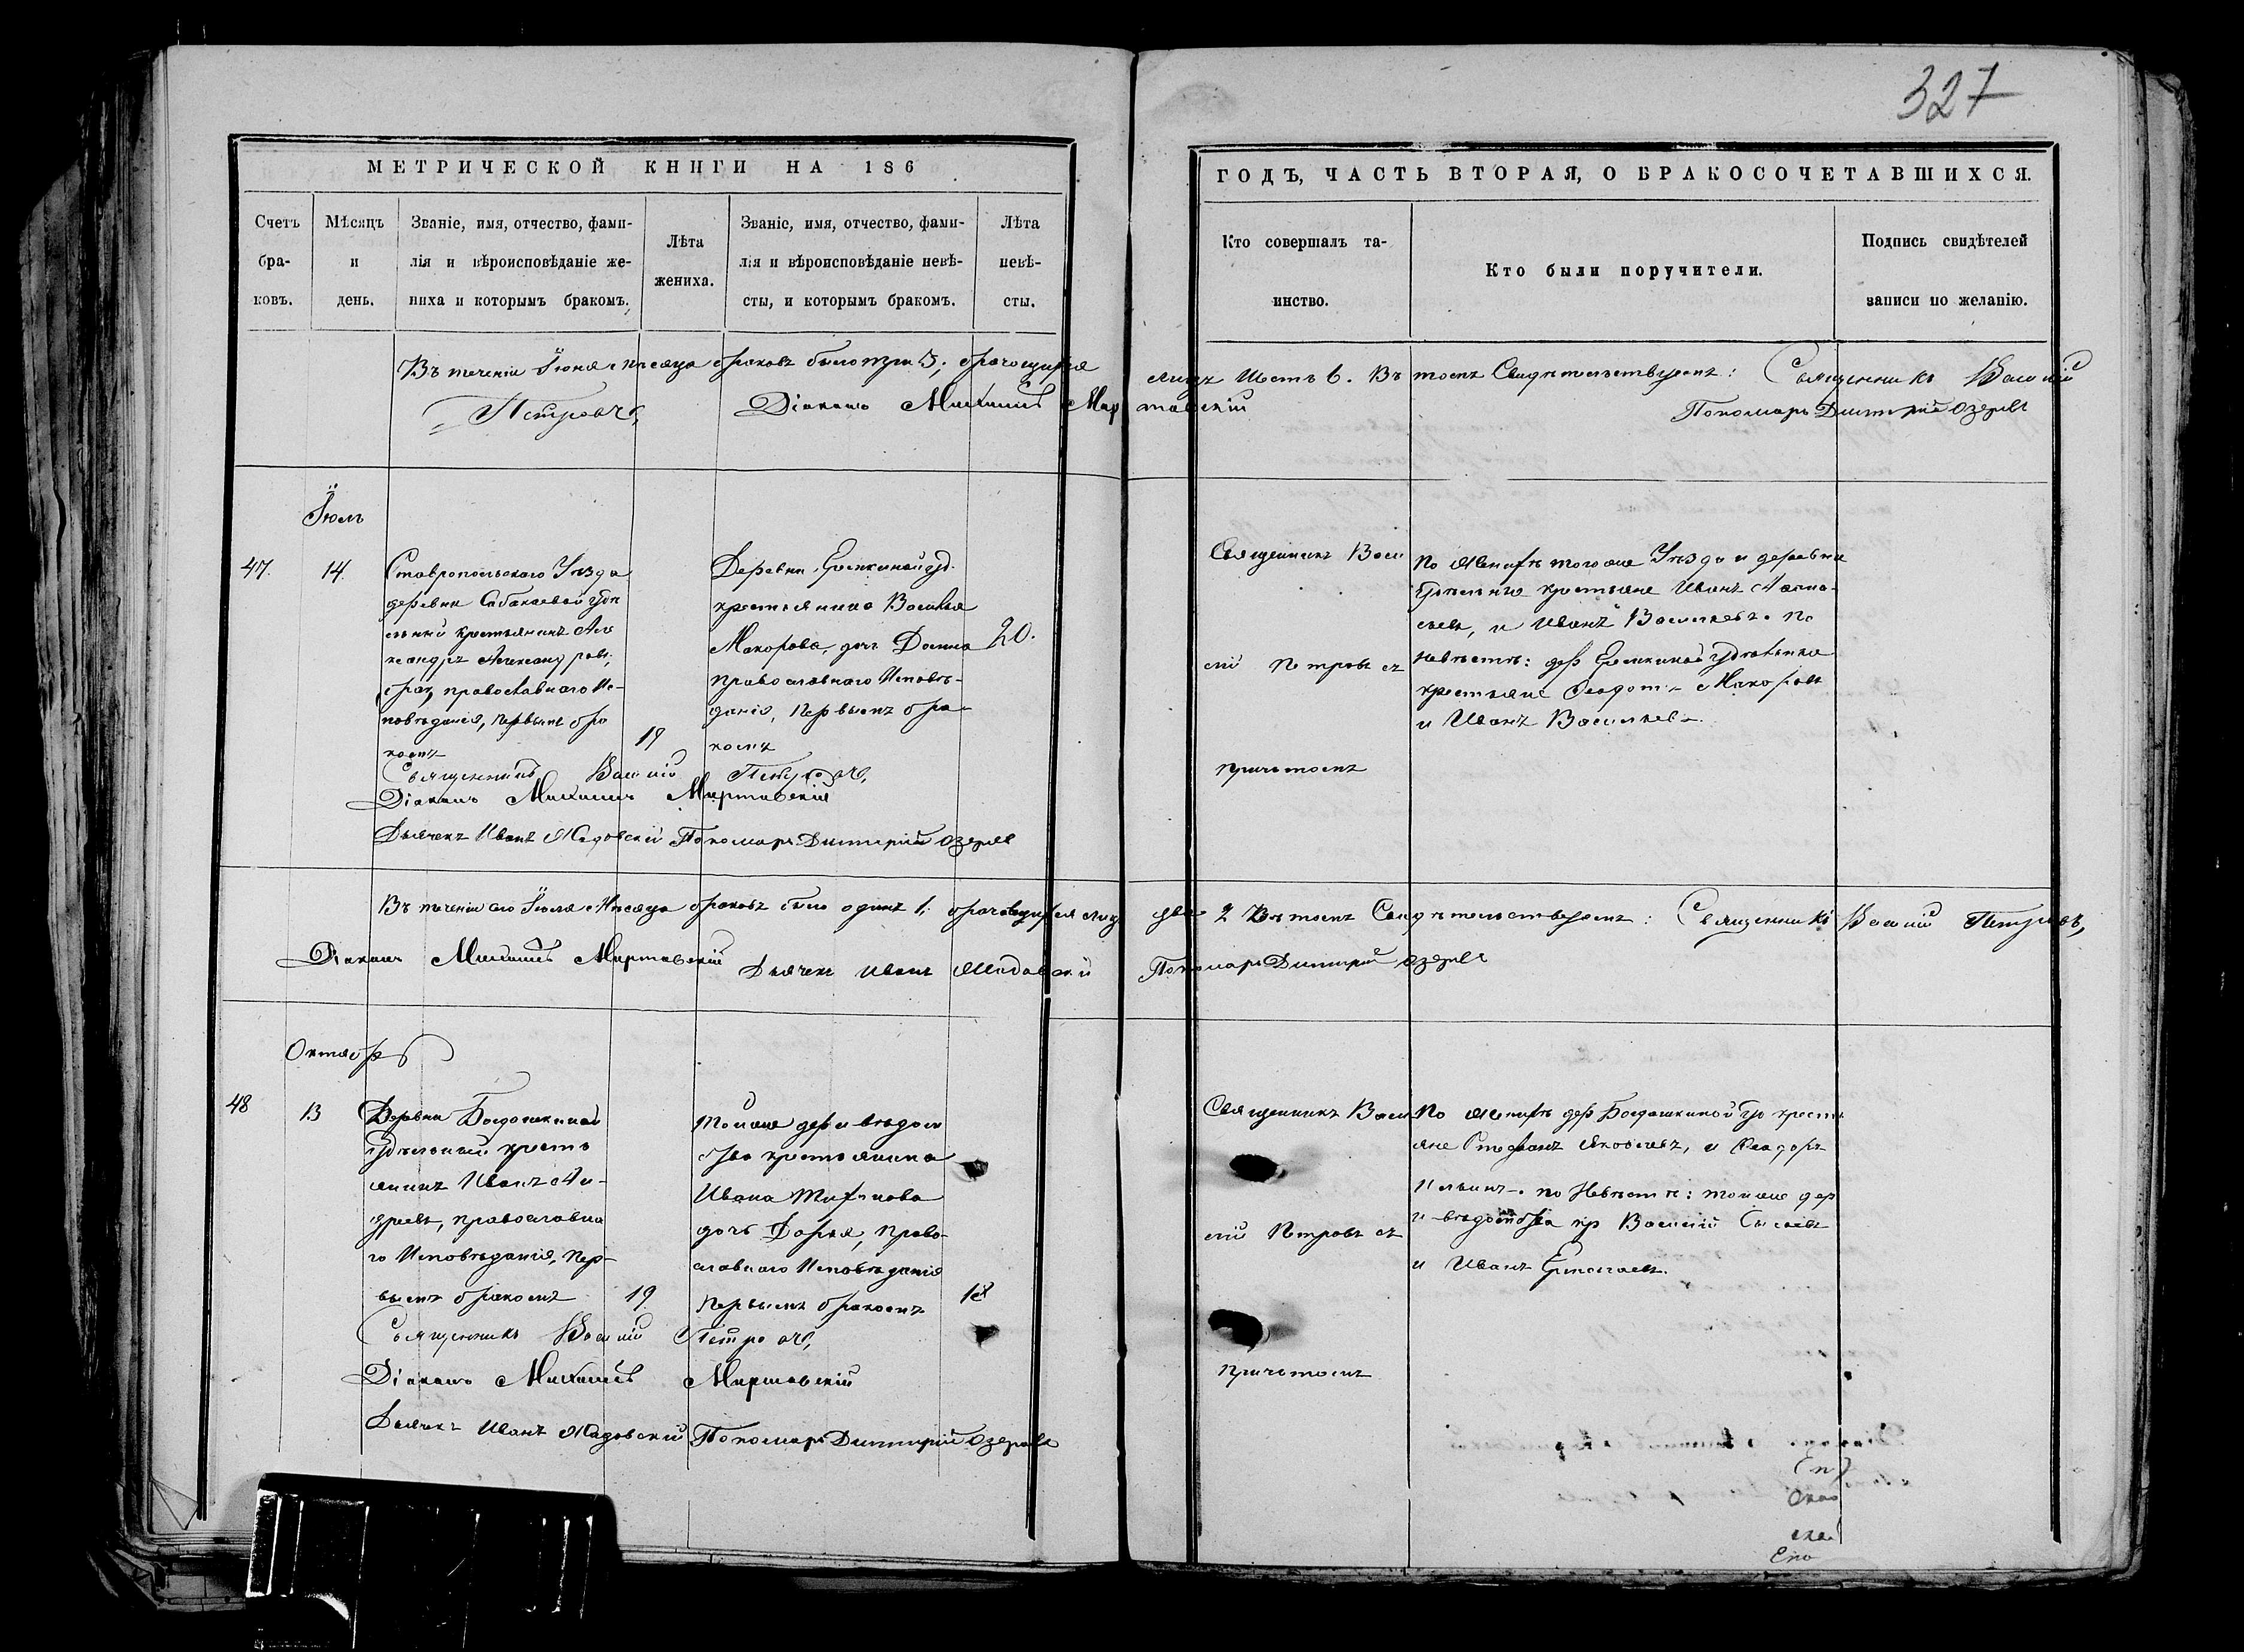 327
МЕТРИЧЕСКОЙ КНИГИ НА 186
ГОДЪ, ЧАСТЬ ВТОРАЯ, О БРАКОСОЧЕТАВШИХСЯ.
Счетъ бра-ковъ.
Мѣсяцъ и день.
Званіе, имя, отчество, фами-
лія и вѣроисповѣданіе же-
ниха и которымъ бракомъ.
Лѣта
жениха.
Званіе, имя, отчество, фами-
лія и вѣроисповѣданіе невѣ-
сты, и которымъ бракомъ.
Лѣта
невѣ-
сты.
Кто совершалъ та-
инство.
Кто были поручители.
Подпись свидѣтелей
записи по желанію.
Въ теченіи Іюня мѣсяца браковъ было три 3; брачущихся лицъ шесть 6. Въ томъ свидѣтельствуемъ: Священникъ Василій
Петровъ, Діаконъ Михаилъ Пономарь Димитрій Озеровъ
Іюль
47. 14.
Ставропольскаго Уѣзда
деревни Сабакаевой удѣ
льный крестьянинъ Але
ксандръ Александровъ,
православнаго Ис-
повѣданія, первымъ бра
комъ
19
Деревни Еремкиной уд.
крестьянина Василья
Макарова, дочь Домна
православнаго Исповѣ-
данія, первымъ бра-
комъ
20.
Священникъ Васи
лій Петровъ съ
причтомъ
По женихѣ тогоже Уѣзда и деревни
Удѣльные крестьяне Иванъ
и Иванъ Васильевъ. По
Невѣстѣ: дер Еремкиной удѣльные
крестьяне Ѳедотъ Макаровъ
и Иванъ Васильевъ.
Священникъ Василій Петровъ,
Діаконъ Михаилъ
Дьячекъ Иванъ Пономарь Димитрій Озеровъ
Въ теченіи Іюля Мѣсяца браковъ было одинъ 1, брачущихся лицъ два 2 Въ томъ Свидѣтельствуемъ: Священникъ Василій Петровъ,
Діаконъ Михаилъ Дьячекъ Иванъ Пономарь Димитрій Озеровъ
Октябрь
48 13
Деревни Богдашкиной
Удѣльный кресть
янинъ Иванъ Ан-
дреевъ, православна
го Исповѣданія, пер-
вымъ бракомъ
19
Тойже дер и вѣдом
ства крестьянина
Ивана
дочь Дарья, право-
славнаго Исповѣданія
первымъ бракомъ
18
Священникъ Васи
лій Петровъ съ
причтомъ
По женихѣ дер Богдашкиной уд кресть
яне Стефанъ Яковлевъ, и Ѳеодоръ
Ильинъ. по Невѣстѣ: тойже дер
и вѣдомства кр Василій
и Иванъ Ермолаевъ.
Священникъ Василій Петровъ,
Діаконъ Михаилъ
Дьячекъ Иванъ Пономарь Димитрій Озеровъ